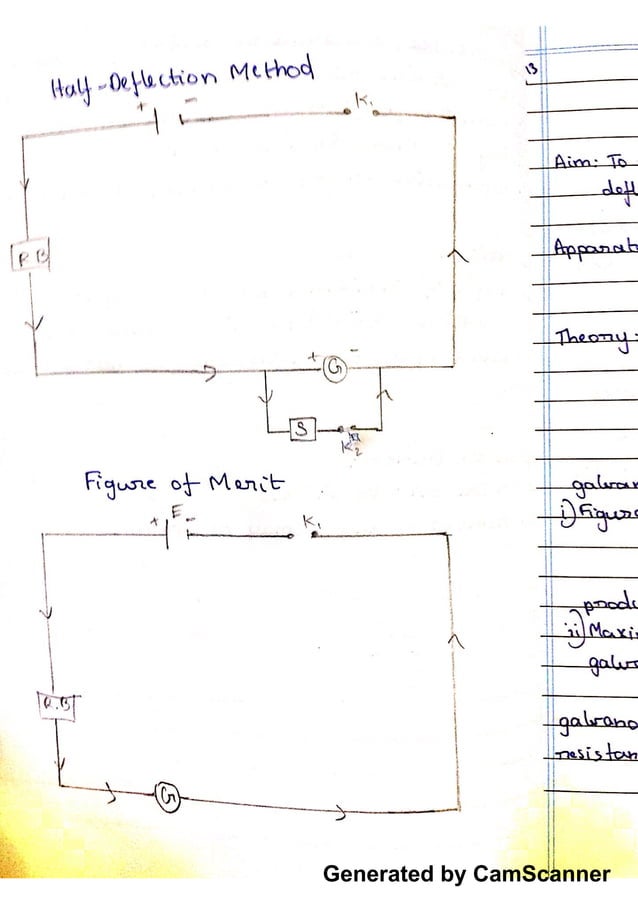 Half-Deflection Method
+ -
K₁
R B
+ G -
S
K₂
Figure of Merit
E
+ -
K₁
R.B
G
13
Aim: To
defl
Apparat
Theory:
galvan
i) Figure
produ
ii) Maxi
galva
galvano
resistan
Generated by CamScanner